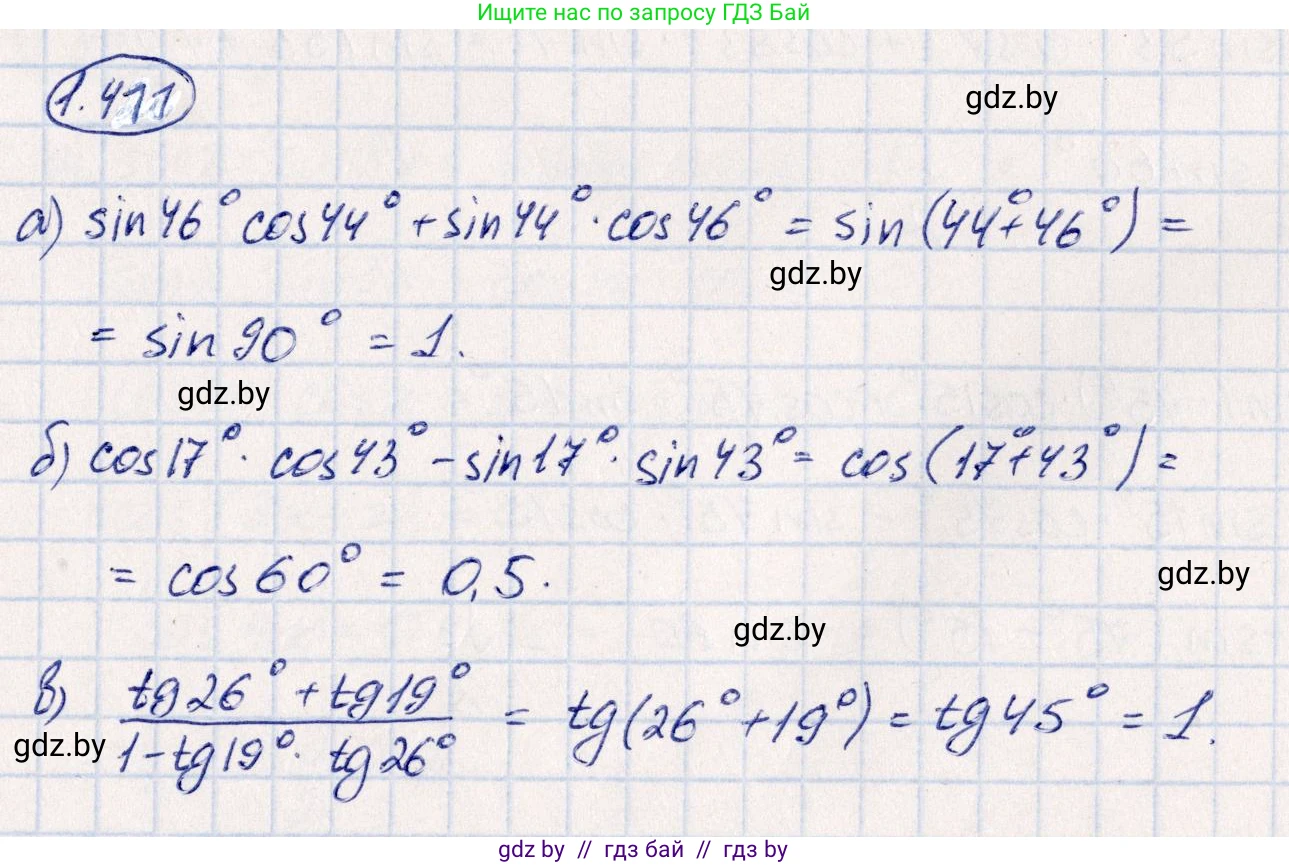 Ищите нас по запросу ГДЗ Бай
1.411
gdz.by
а) sin 46° cos 44° + sin 44° · cos 46° = sin (44° + 46°) =
gdz.by
= sin 90° = 1.
gdz.by
б) cos 17° · cos 43° - sin 17° · sin 43° = cos (17° + 43°) =
= cos 60° = 0,5.
gdz.by
gdz.by
в) (tg 26° + tg 19°) / (1 - tg 19° · tg 26°) = tg (26° + 19°) = tg 45° = 1.
gdz.by
gdz.by // гдз бай // гдз by